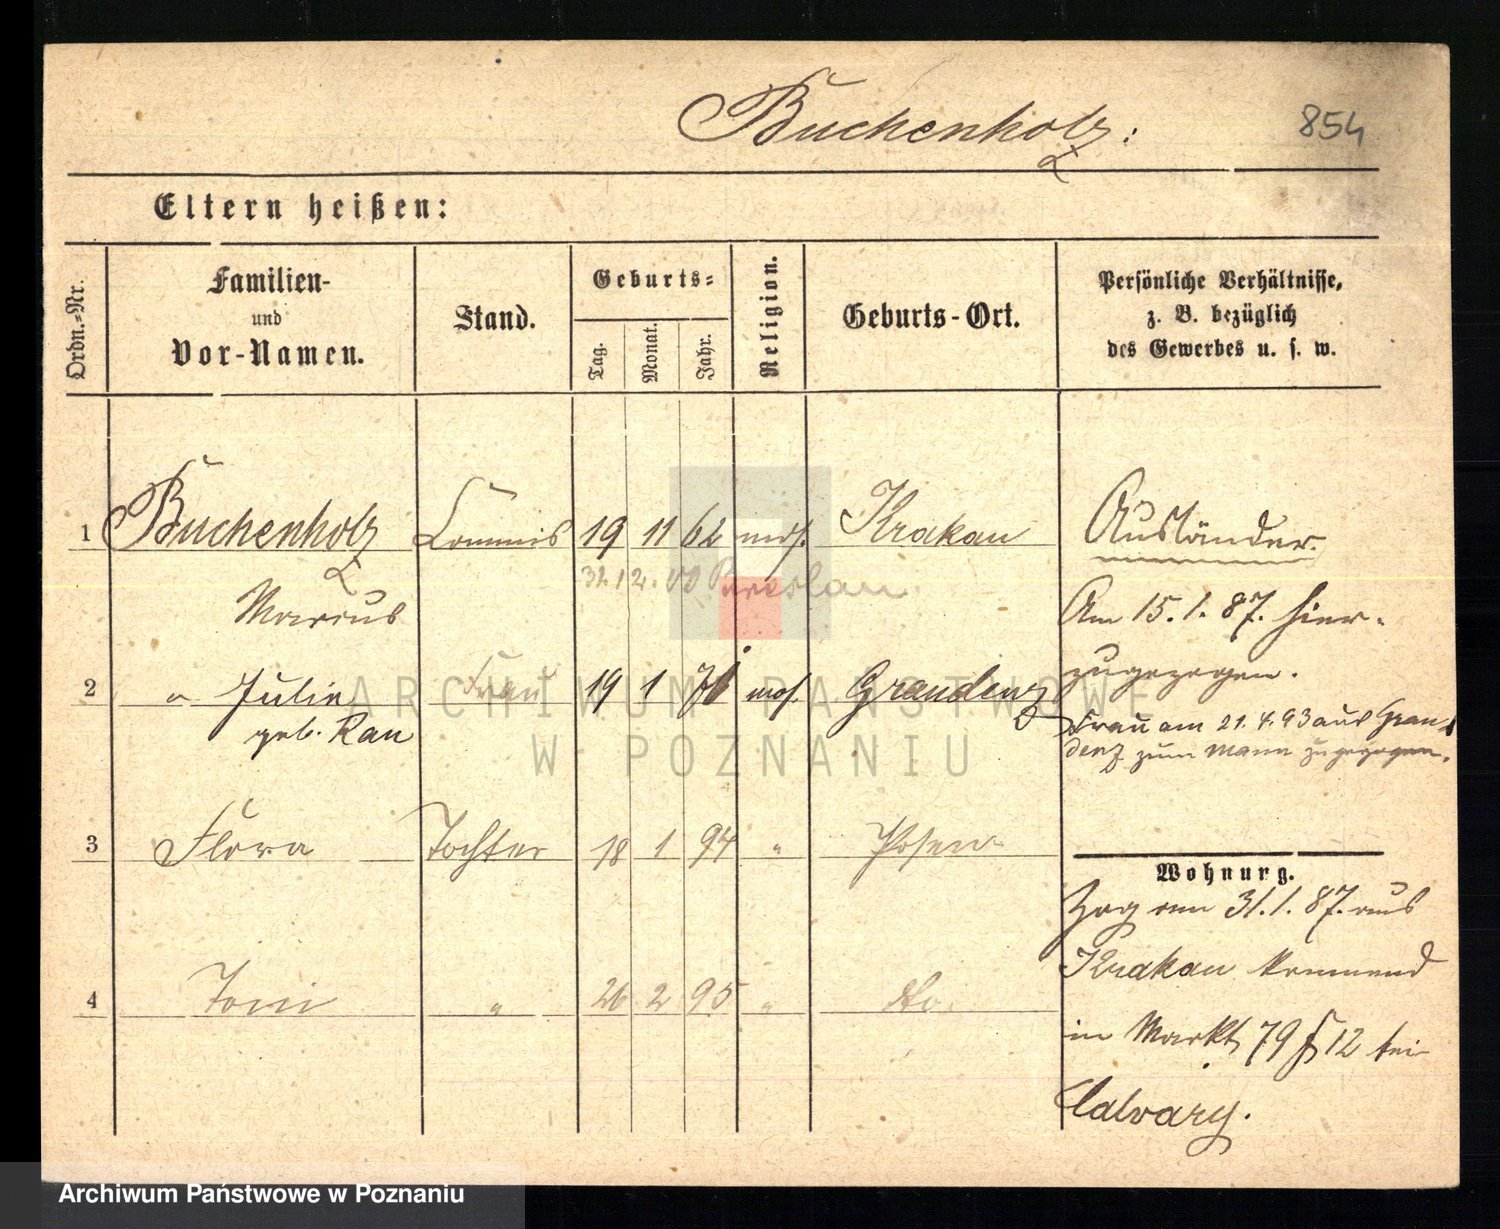 Buchenholz:
854
Eltern heißen:
Ordn.-Nr.
Familien-
und
Vor-Namen.
Stand.
Geburts-
Tag.
Monat.
Jahr.
Religion.
Geburts-Ort.
Persönliche Verhältnisse,
z. B. bezüglich
des Gewerbes u. s. w.
1 Buchenholz Commis 19 11 62 mos. Krakau
31.12.00 Breslau.
Marcus
Ausländer.
Am 15.1.87. hier-
zugezogen.
2 Julie Frau 19 1 mos. Graudenz
geb. Rau
Frau am 21.4.93 aus Grau-
denz zum Mann zugezogen.
3 Flora Tochter 18 1 94 " Posen
4 Toni " 26 2 95 " do.
Wohnung.
Zog am 31.1.87. aus
Krakau kommend
in Markt 79 12 bei
Calvary.
ARCHIWUM PAŃSTWOWE
W POZNANIU
Archiwum Państwowe w Poznaniu